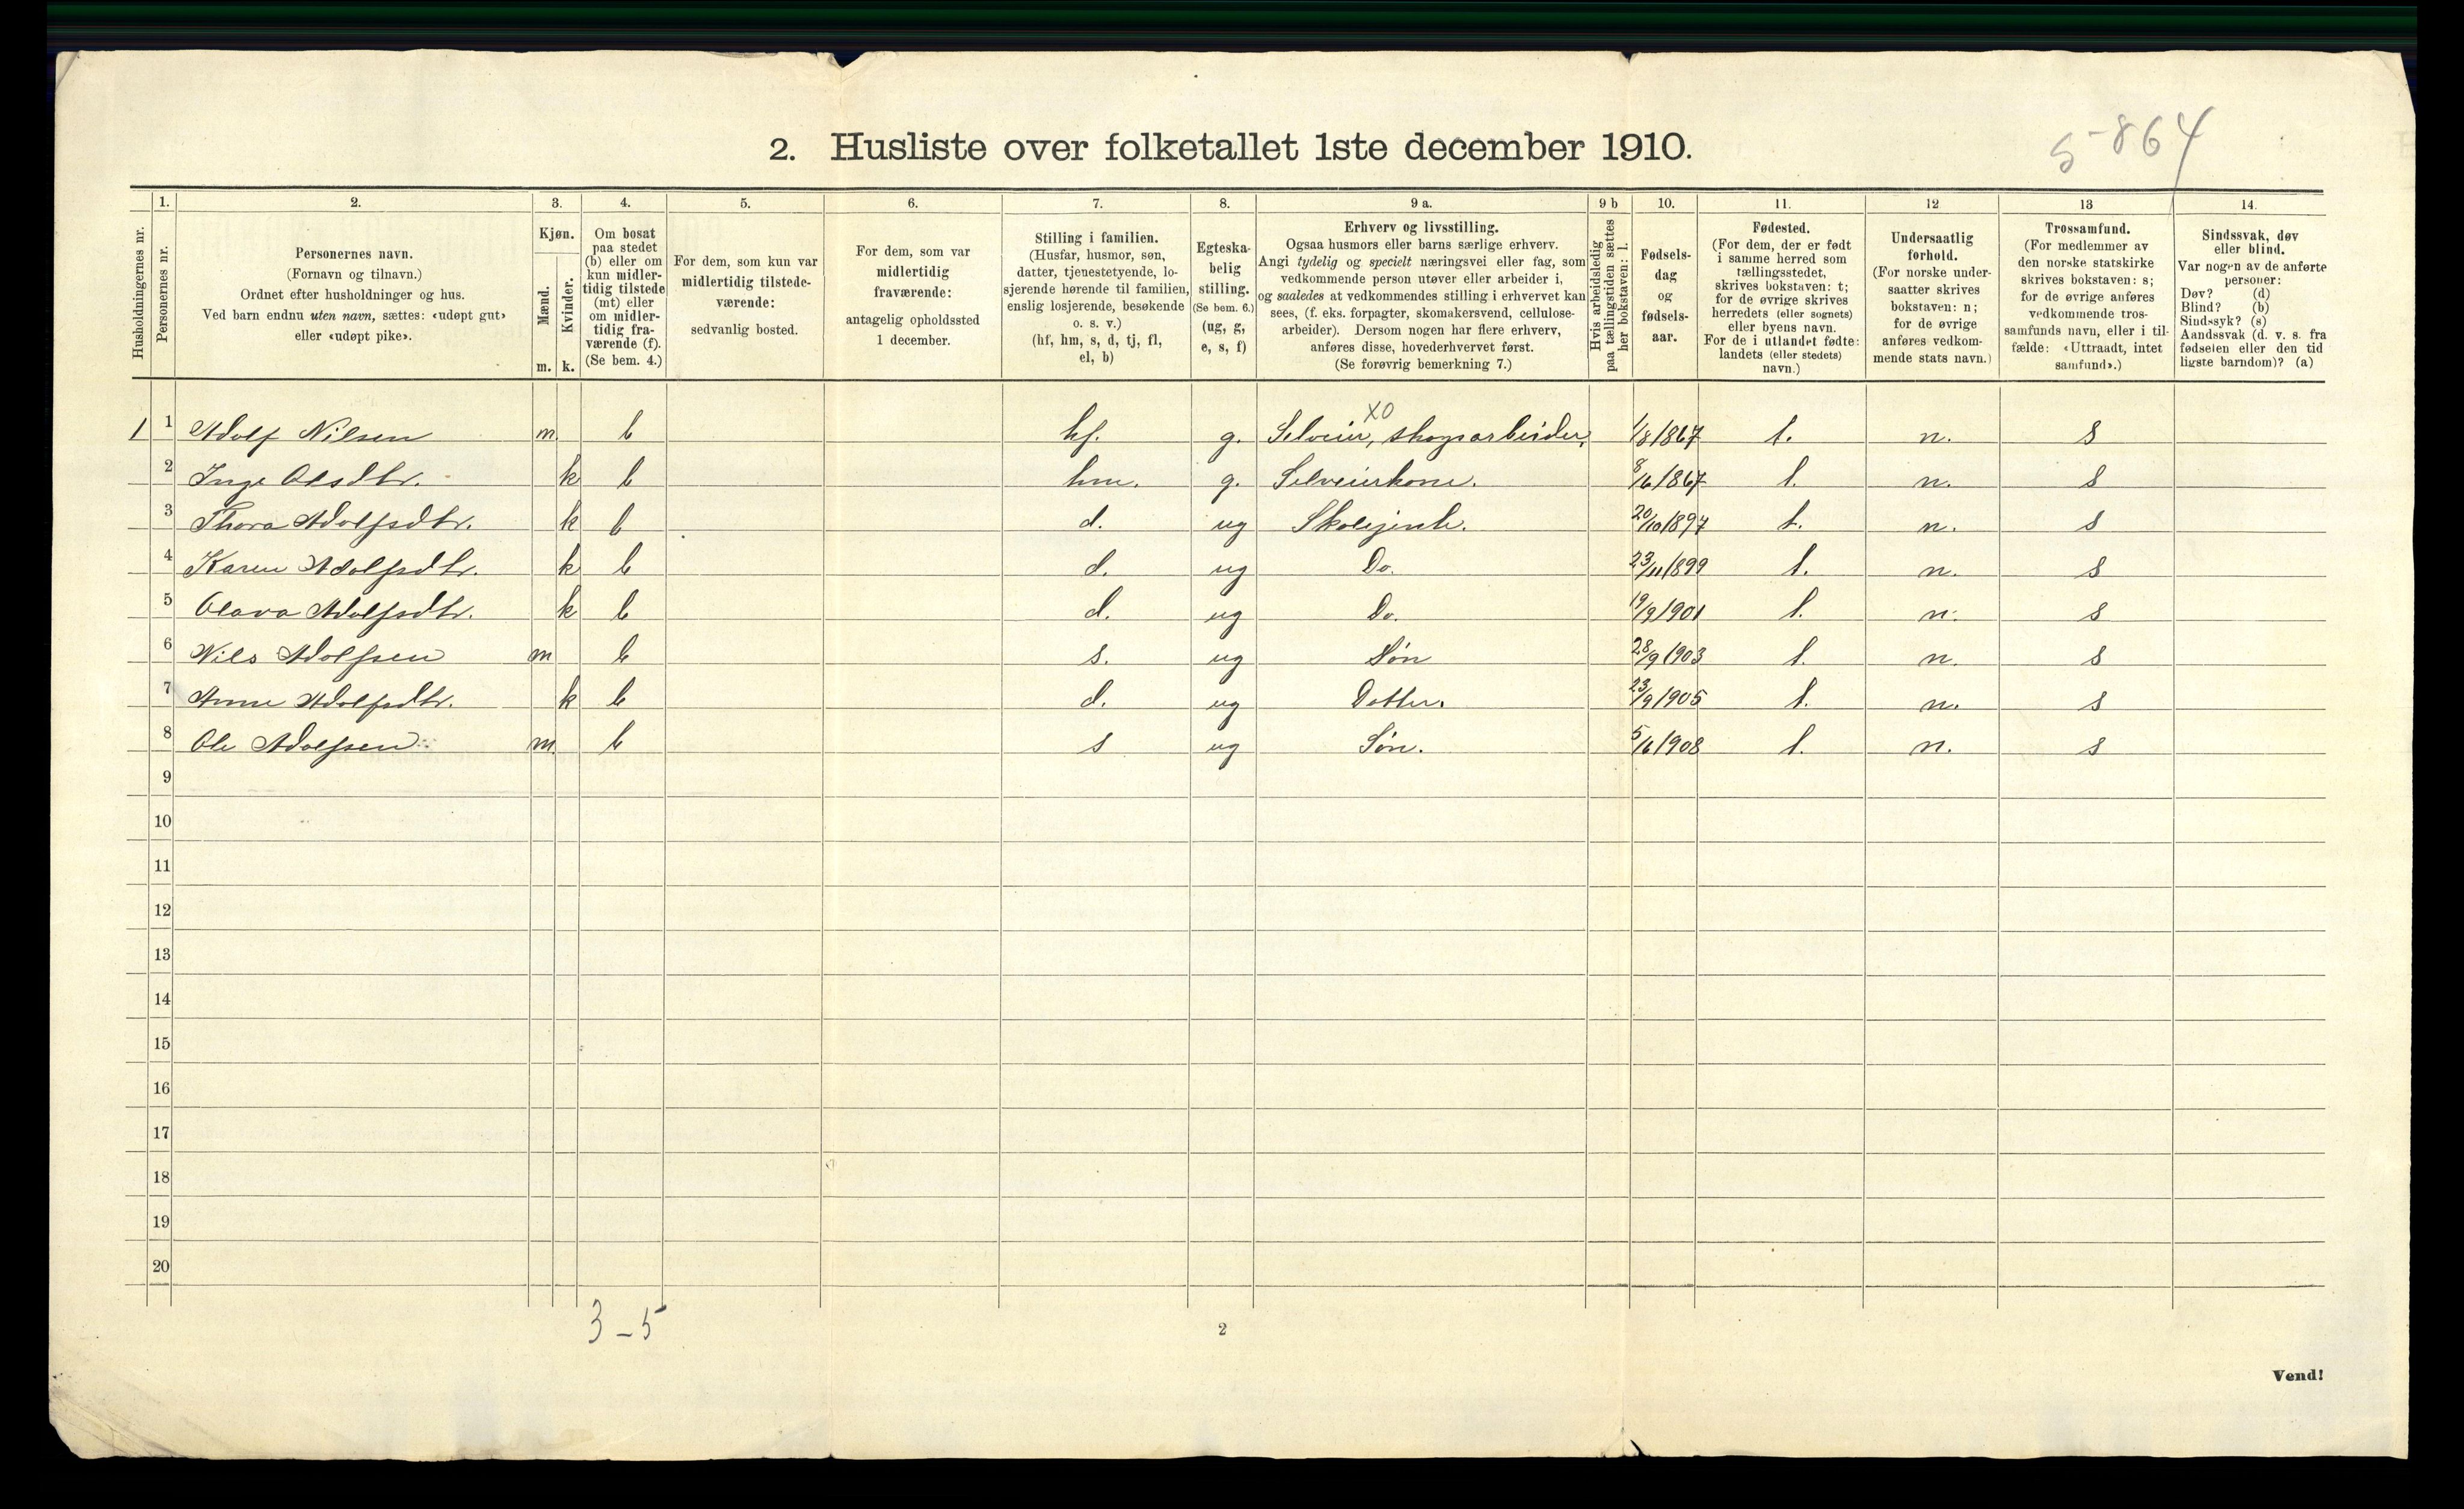 5-864
2. Husliste over folketallet 1ste december 1910.
Husholdningernes nr.
1.
Personernes nr.
2.
Personernes navn.
(Fornavn og tilnavn.)
Ordnet efter husholdninger og hus.
Ved barn endnu uten navn, sættes: «udøpt gut»
eller «udøpt pike».
3.
Kjøn.
Mænd.
m.
Kvinder.
k.
4.
Om bosat
paa stedet
(b) eller om
kun midler-
tidig tilstede
(mt) eller
om midler-
tidig fra-
værende (f).
(Se bem. 4.)
5.
For dem, som kun var
midlertidig tilstede-
værende:
sedvanlig bosted.
6.
For dem, som var
midlertidig
fraværende:
antagelig opholdssted
1 december.
7.
Stilling i familien.
(Husfar, husmor, søn,
datter, tjenestetyende, lo-
sjerende hørende til familien,
enslig losjerende, besøkende
o. s. v.)
(hf, hm, s, d, tj, fl,
el, b)
8.
Egteska-
belig
stilling.
(Se bem. 6.)
(ug, g,
e, s, f)
9 a.
Erhverv og livsstilling.
Ogsaa husmors eller barns særlige erhverv.
Angi tydelig og specielt næringsvei eller fag, som
vedkommende person utøver eller arbeider i,
og saaledes at vedkommendes stilling i erhvervet kan
sees, (f. eks. forpagter, skomakersvend, cellulose-
arbeider). Dersom nogen har flere erhverv,
anføres disse, hovederhvervet først.
(Se forøvrig bemerkning 7.)
9 b
Hvis arbeidsledig
paa tællingstiden sættes
her bokstaven: l.
10.
Fødsels-
dag
og
fødsels-
aar.
11.
Fødested.
(For dem, der er født
i samme herred som
tællingsstedet,
skrives bokstaven: t;
for de øvrige skrives
herredets (eller sognets)
eller byens navn.
For de i utlandet fødte:
landets (eller stedets)
navn.)
12
Undersaatlig
forhold.
(For norske under-
saatter skrives
bokstaven: n;
for de øvrige
anføres vedkom-
mende stats navn.)
13
Trossamfund.
(For medlemmer av
den norske statskirke
skrives bokstaven: s;
for de øvrige anføres
vedkommende tros-
samfunds navn, eller i til-
fælde: «Uttraadt, intet
samfund».)
14.
Sindssvak, døv
eller blind.
Var nogen av de anførte
personer:
Døv? (d)
Blind? (b)
Sindssyk? (s)
Aandssvak (d. v. s. fra
fødselen eller den tid
ligste barndom)? (a)
XO
1 1 Adolf Nilsen m. b hf. g. Selveier, skogsarbeider, 1/8 1867 t. n. s
2 Inge Olsdtr. k b hm. g. Selveierkone. 8/6 1867 t. n. s
3 Thora Adolfsdtr. k b d. ug Skolejente. 20/10 1897 t. n. s
4 Karen Adolfsdtr. k b d. ug Do. 23/11 1899 t. n. s
5 Olava Adolfsdtr. k b d. ug Do. 19/9 1901 t. n. s
6 Nils Adolfsen m b s. ug Søn 28/9 1903 t. n. s
7 Anne Adolfsdtr. k b d. ug Datter. 23/9 1905 t. n. s
8 Ole Adolfsen m. b s ug Søn. 5/6 1908 t. n. s
9
10
11
12
13
14
15
16
17
18
19
20
3-5
2
Vend!